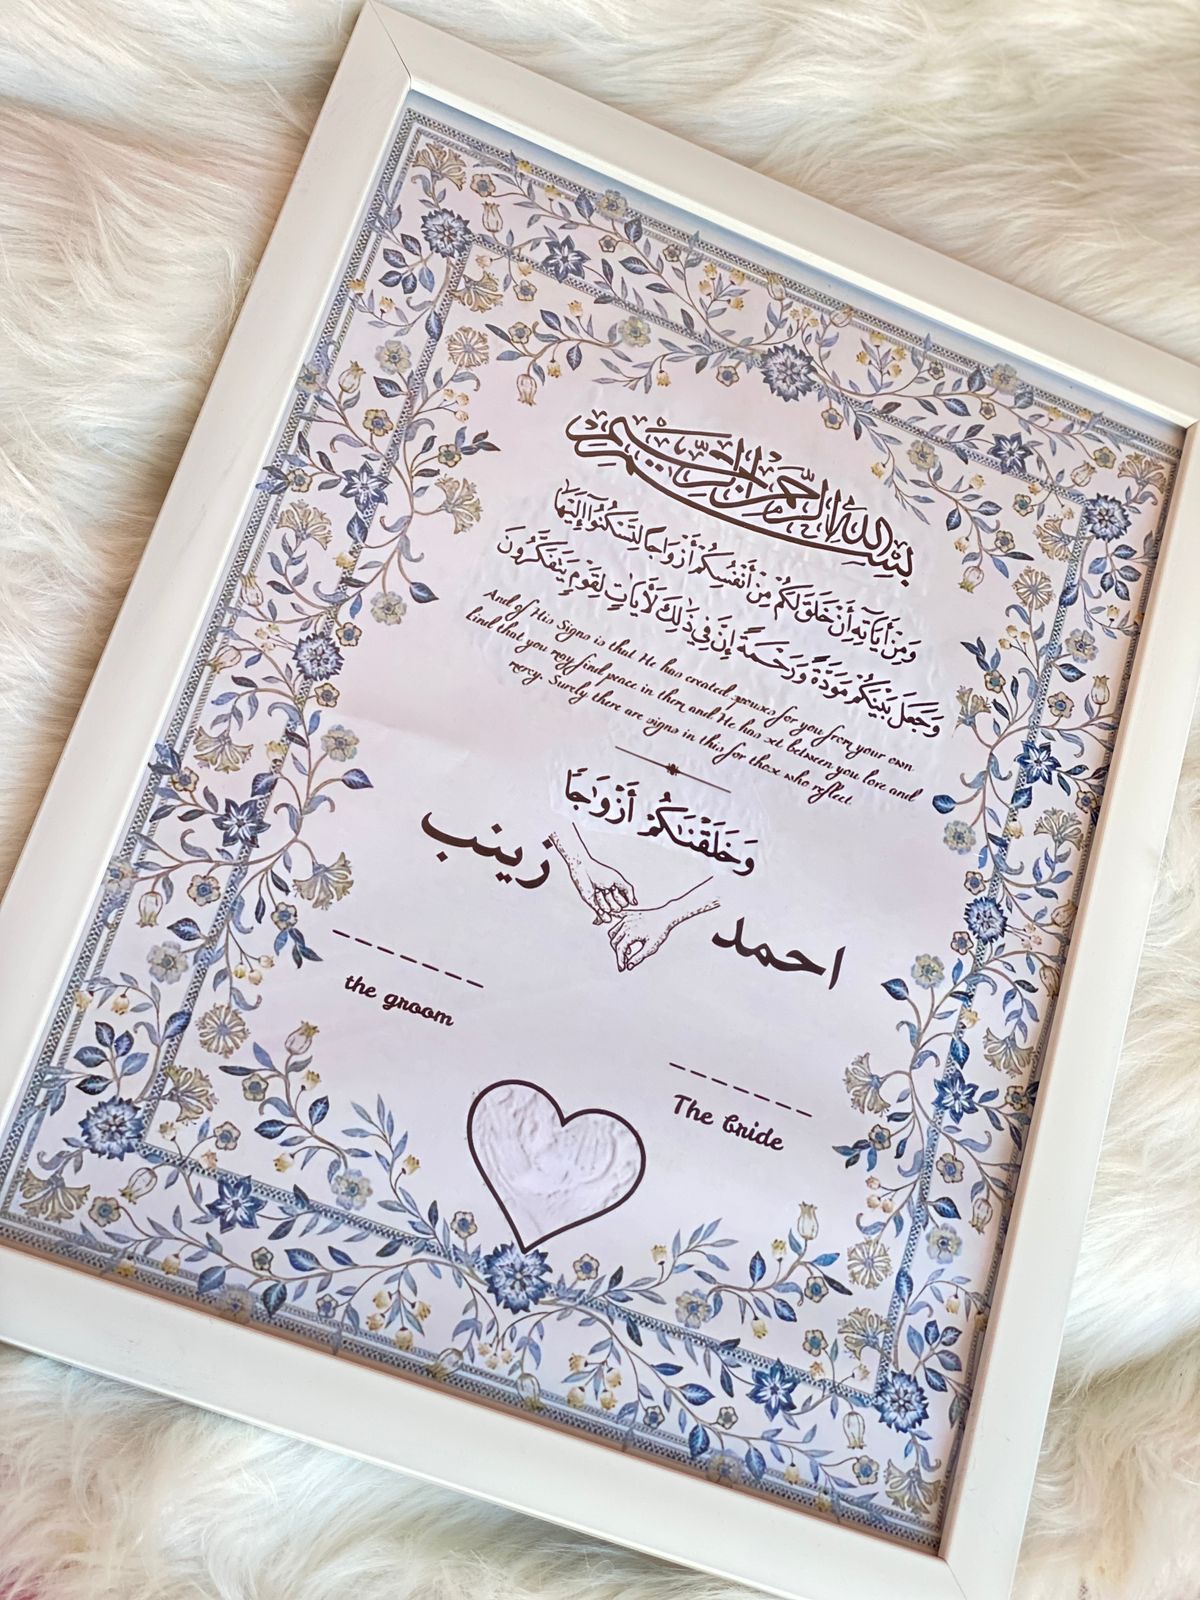 بِسْمِ اللَّهِ الرَّحْمَٰنِ الرَّحِيمِ
وَمِنْ آيَاتِهِ أَنْ خَلَقَ لَكُمْ مِنْ أَنْفُسِكُمْ أَزْوَاجًا لِتَسْكُنُوا إِلَيْهَا
وَجَعَلَ بَيْنَكُمْ مَوَدَّةً وَرَحْمَةً إِنَّ فِي ذَلِكَ لَآيَاتٍ لِقَوْمٍ يَتَفَكَّرُونَ
And of His Signs is that He has created spouses for you from your own
kind that you may find peace in them and He has set between you love and
mercy. Surely there are signs in this for those who reflect
وَخَلَقْنَاكُمْ أَزْوَاجًا
احمد زينب
the groom
The bride